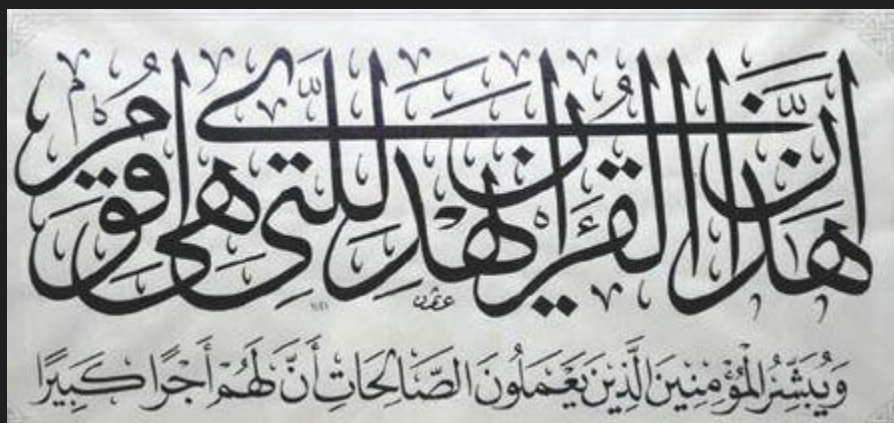 إِنَّ هَذَا الْقُرْآنَ يَهْدِي لِلَّتِي هِيَ أَقْوَمُ
وَيُبَشِّرُ الْمُؤْمِنِينَ الَّذِينَ يَعْمَلُونَ الصَّالِحَاتِ أَنَّ لَهُمْ أَجْرًا كَبِيرًا